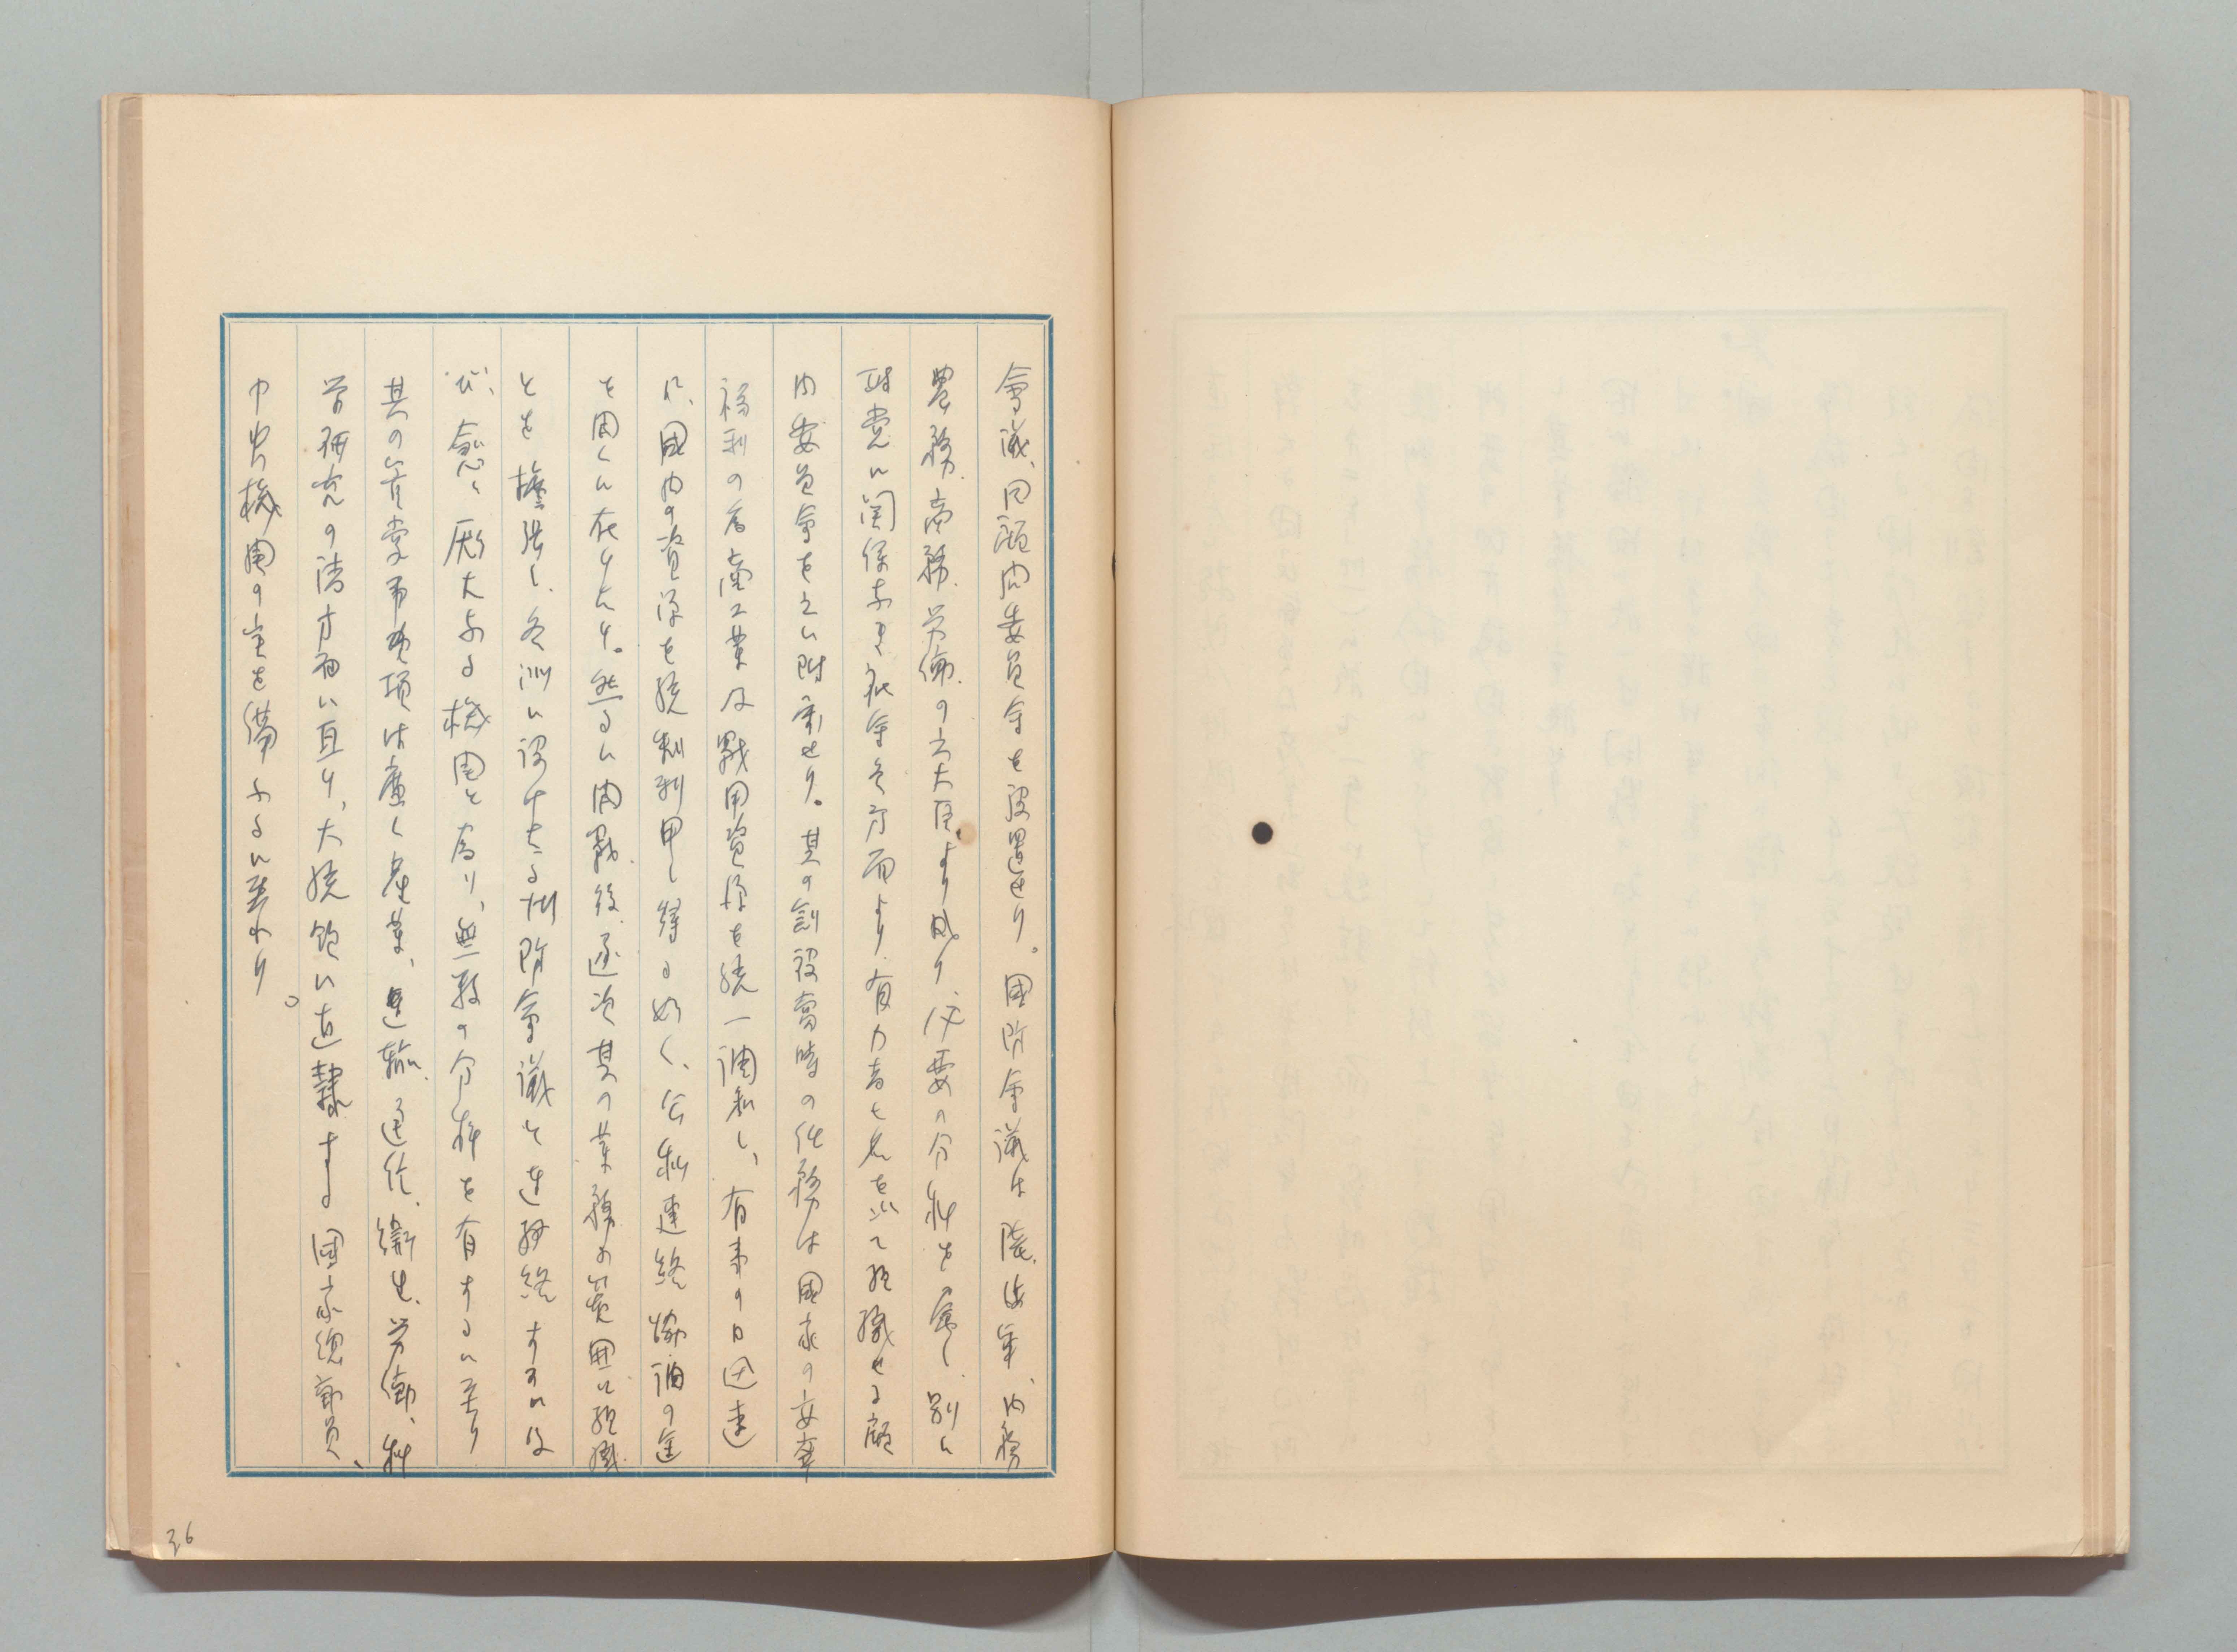 會議、同顧問委員会を設置せり。國防会議は陸、海軍、内務
農務、商務、労働の六大臣より成り、必要の分科を属し、別に
政党に関係なき社会各方面より有力者七名を以て組織せる顧
問委員会を之に附属せり。其の創設当時の任務は国家の安寧
福利の為商工業及戰用資源を統一調和し、有事の日迅速
に、國内の資源を統制利用し得る如く、公私連絡協調の途
を開くに在りたり。然るに開戰後逐次其の業務の範囲と組織
とを擴張し、各洲に設けたる州防會議と連絡するに及
び、愈々厖大なる機関と為り、無数の分科を有するに至り
其の管掌事項は廣く産業、運輸、通信、衛生、労働、科
学研究の諸方面に亘り、大統領に直隷する國家総動員、
中央機関の実を備ふるに至れり。
36